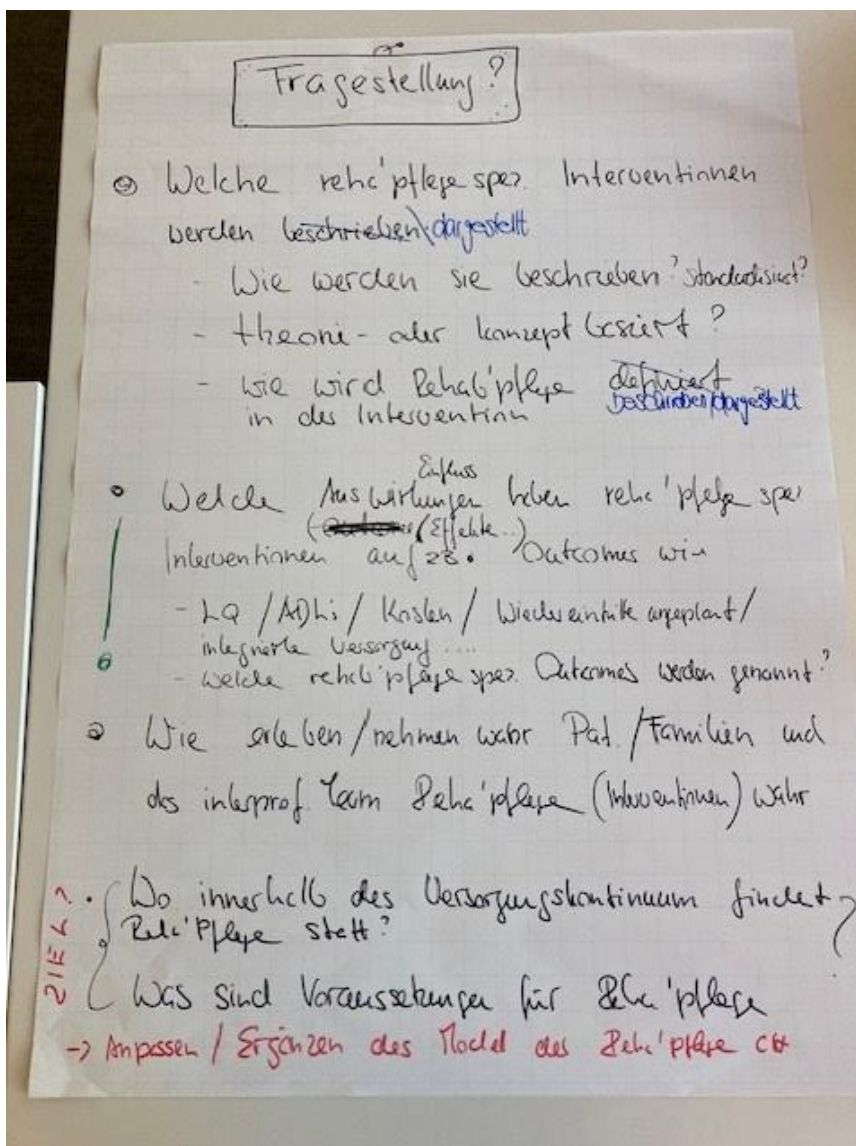 Fragestellung?
Welche reha'pflege spez. Interventionen
werden beschrieben\dargestellt
- Wie werden sie beschrieben? standardisiert?
- theorie- oder konzept basiert?
- wie wird Rehab'pflege definiert
beschrieben/dargestellt
in der Intervention
Einfluss
Welche Auswirkungen haben reha'pflege spez
(Effekte..)
Interventionen auf zB. Outcomes wie
- LQ / ADLs / Kosten / Wiedereintritte ungeplant/
integrierte Versorgung ....
- welche rehab'pflege spez. Outcomes werden genannt?
Wie erleben/nehmen wahr Pat. / Familien und
das interprof. Team Reha'pflege (Interventionen) wahr
ZIEL?
Wo innerhalb des Versorgungskontinuum findet
Reha'Pflege statt?
Was sind Voraussetzungen für Reha'pflege
?
-> Anpassen / Ergänzen des Model des Reha'pflege CH